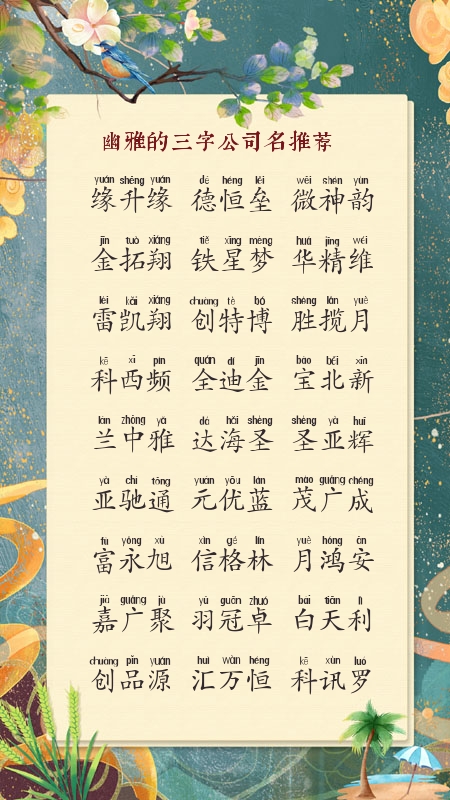 幽雅的三字公司名推荐
yuán shēng yuán dé héng lěi wēi shén yùn
缘升缘 德恒垒 微神韵
jīn tuò xiáng tiě xīng mèng huá jīng wéi
金拓翔 铁星梦 华精维
léi kǎi xiáng chuàng tè bó shèng lǎn yuè
雷凯翔 创特博 胜揽月
kē xī pín quán dí jīn bǎo běi xīn
科西频 全迪金 宝北新
lán zhōng yǎ dá hǎi shèng shèng yà huī
兰中雅 达海圣 圣亚辉
yà chí tōng yuán yōu lán mào guǎng chéng
亚驰通 元优蓝 茂广成
fù yǒng xù xìn gé lín yuè hóng ān
富永旭 信格林 月鸿安
jiā guǎng jù yǔ guān zhuó bái tiān lì
嘉广聚 羽冠卓 白天利
chuàng pǐn yuán huì wàn héng kē xùn luó
创品源 汇万恒 科讯罗